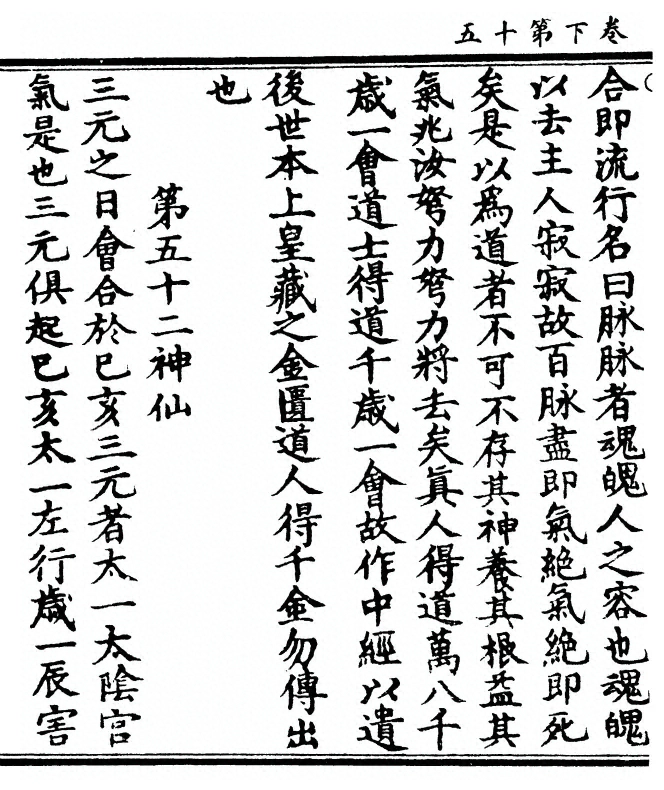 卷下第十五
合即流行名曰脉脉者魂魄人之容也魂魄
以去主人寂寂故百脉盡即氣絶氣絶即死
矣是以爲道者不可不存其神養其根益其
氣兆汝努力努力將去矣眞人得道萬八千
歲一會道士得道千歲一會故作中經以遺
後世本上皇藏之金匱道人得千金勿傳出
也
第五十二神仙
三元之日會合於巳亥三元者太一太陰宫
氣是也三元俱起巳亥太一左行歲一辰害